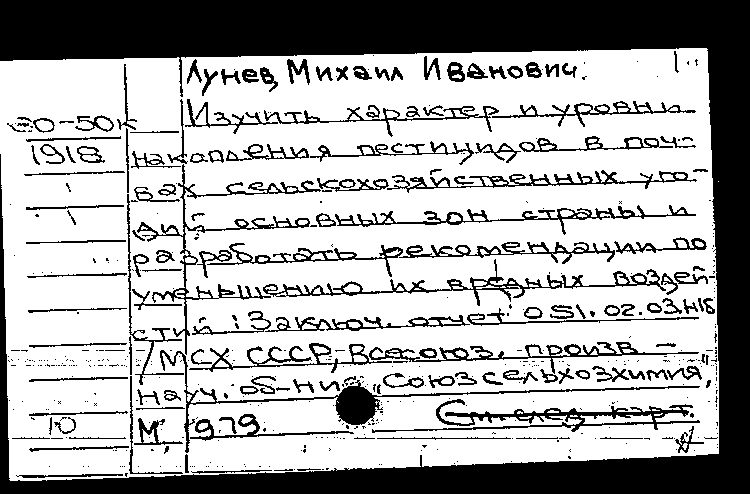 Лунев, Михаил Иванович.
Изучить характер и уровни
80-50к
1918 накопления пестицидов в поч-
вах сельскохозяйственных уго-
дий основных зон страны и
разработать рекомендации по
уменьшению их вредных воздей-
стий : Заключ. отчет 051.02.03.Н18
/ МСХ СССР, Всесоюз. произв -
науч. об-ние „Союзсельхозхимия",
10 М, 1979. См. след. карт.